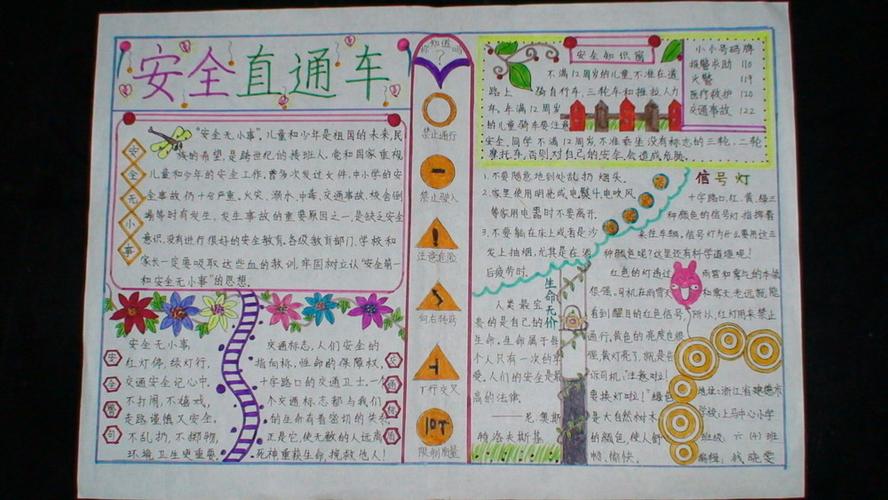 安全直通车
安全无小事
"安全无小事"，儿童和少年是祖国的未来，民
族的希望，是跨世纪的接班人，党和国家重视
儿童和少年的安全工作，曾多次发过文件，中小学的安
全事故仍十分严重，火灾、溺水、中毒、交通事故、校舍倒
塌等时有发生，发生事故的重要原因之一，是缺乏安全
意识，没有进行很好的安全教育。各级教育部门、学校和
家长一定要吸取这些血的教训，牢固树立认"安全第一
和安全无小事"的思想。
安全警句
安全无小事，
红灯停，绿灯行，
交通安全记心中，
不打闹，不嬉戏，
走路谨慎又安全，
不乱扔，不绑物，
环境卫生更重要。
交通标志，人们安全的
指向标，性命的保障权，
十字路口的交通卫士，一
个交通标志都与我们
的生命有着密切的关系，
正是它，使无数的人远离
死神重获生命，挽救他人！
你知道吗
？
禁止通行
禁止驶入
注意危险
向右转弯
丁行交叉
10T
限制质量
安全知识窗
不满12周岁的儿童，不准在道
路上骑自行车、三轮车和推拉人力
车，车满12周岁
的儿童，骑车要注意
安全，同学不满12周岁，不准乘坐没有标志的三轮、二轮
摩托车，否则对自己的安全，会造成危胁。
小小号码牌
报警求助 110
火警 119
医疗救护 120
交通事故 122
1.不要随意地到处乱扔烟头。
2.家里使用明亮或电熨斗、电吹风
等家用电器时不要离开。
3.不要躺在床上或者是沙
发上抽烟，尤其是在酒
后疲劳时。
生命无价
人类最宝
贵的是自己的
生命，生命属于每
个人只有一次的享
受，人们的安全是最
高的法律。
——尼·奥斯
特洛夫斯基
信号灯
十字路口，红、黄、绿三
种颜色的信号灯指挥着
来往车辆，信号灯为什么要用这三
种颜色呢？这里还有科学道理呢！
红色的灯透过雨雾和霜红的本领
很强，司机在雨雪天和雾天老远就能
看到耀目的红色信号，所以，红灯用来禁止
通行，黄色的亮度也很
强，黄灯亮了，就是告
诉司机："注意啦！
要换灯啦！"绿色
是大自然树木
的颜色，使人舒
畅、愉快。
地址：浙江省建德市
学校：上马中心小学
班级：六（4）班
编辑：钱晓雯